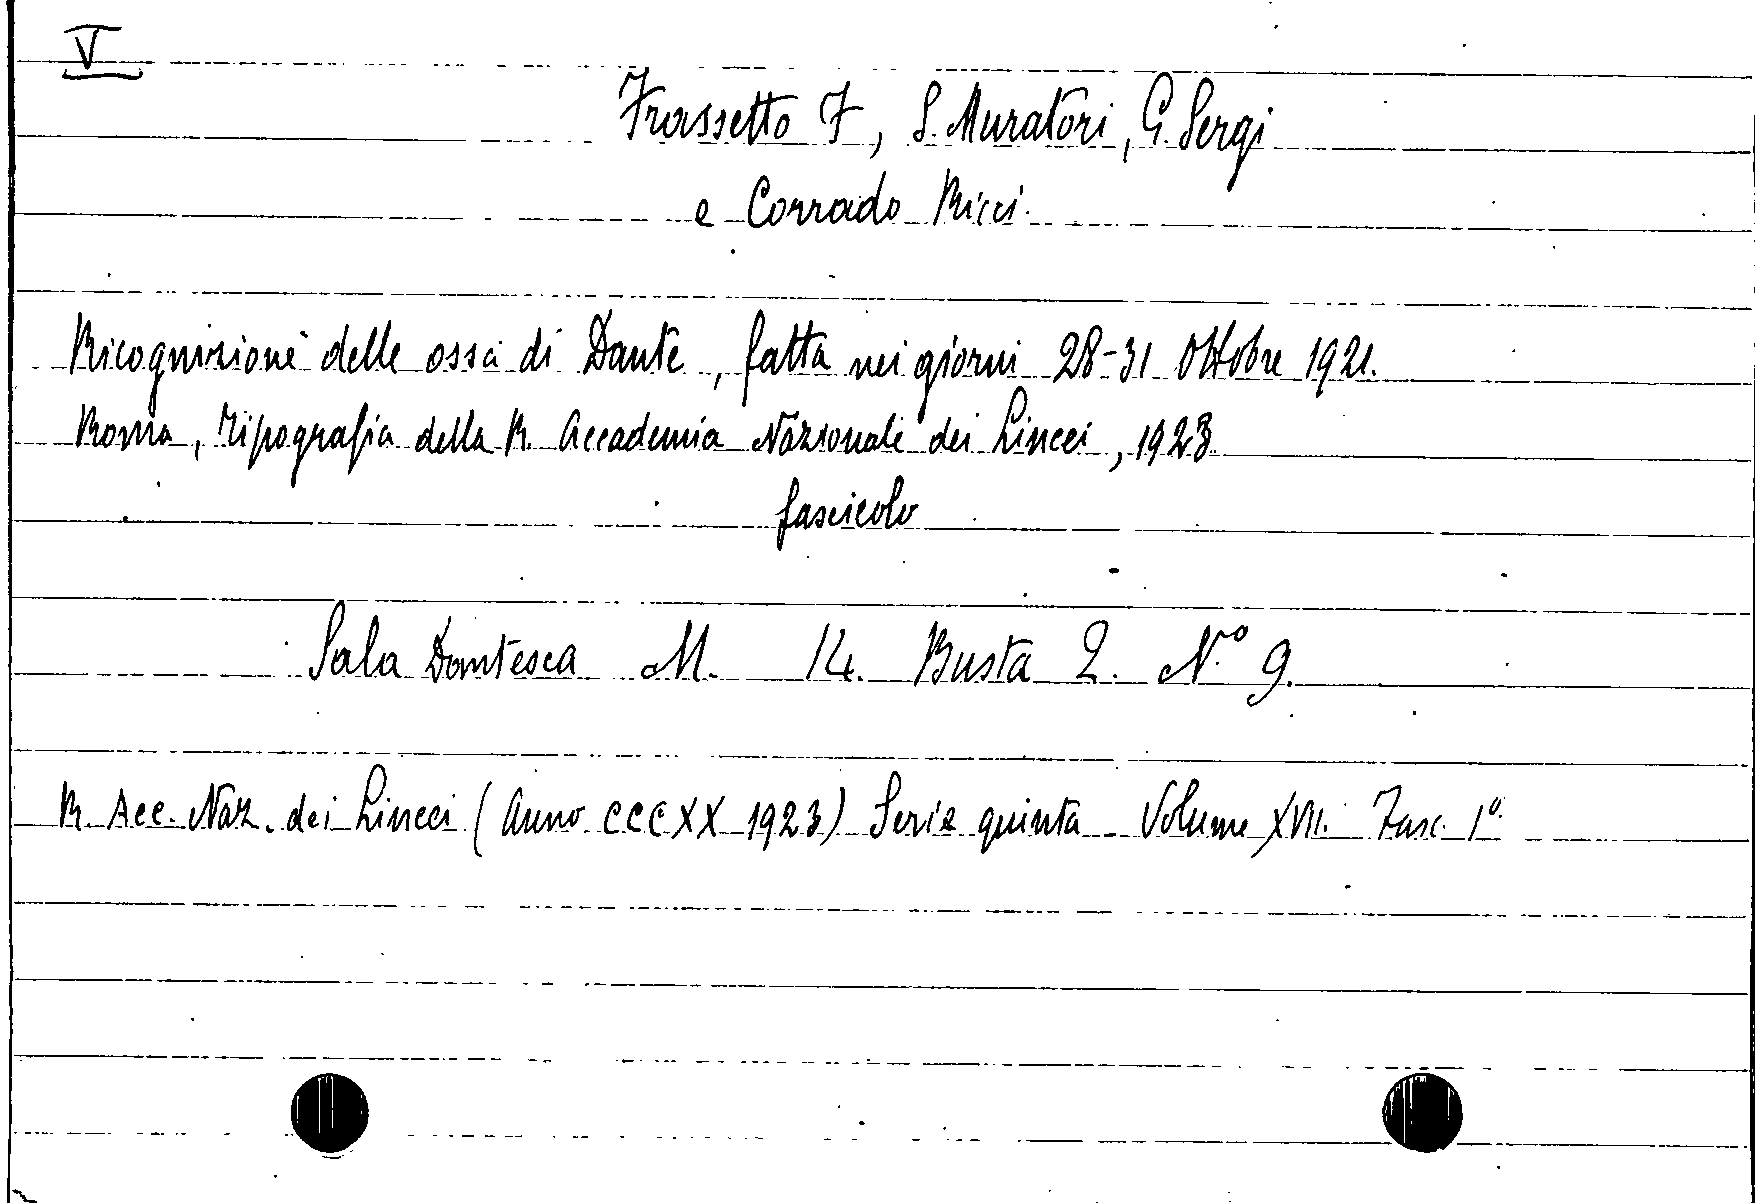 V
Frassetto F, S. Muratori, G. Sergi
e Corrado Ricci.
Ricognizione delle ossa di Dante, fatta nei giorni 28-31 Ottobre 1921.
Roma, Tipografia della R. Accademia Nazionale dei Lincei, 1923
fascicolo
Sala Dantesca M. 14. Busta 2. N.º 9.
R. Acc. Naz. dei Lincei (Anno CCCXX 1923) Serie quinta Volume XVII. Fasc. 1º.